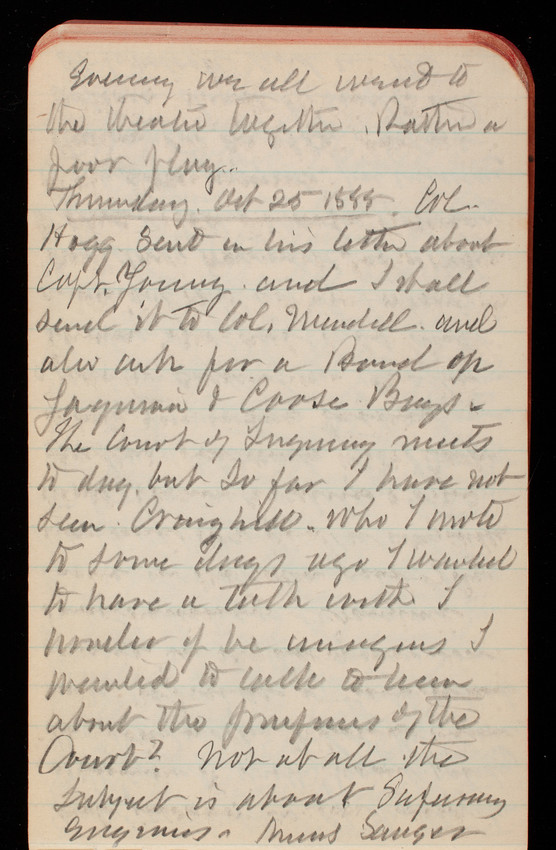 Evening we all went to
the theatre together. Rather a
poor play.
Thursday. Oct 25 1888. Col.
Hogg sent in his letter about
Capt. Young. and I shall
send it to Col. Mendell. and
also ask for a Board on
Yaquina & Coose Bays.
The Court of Inquiry meets
to day. but so far I have not
seen Craighill. who I wrote
to some days ago I wanted
to have a talk with. I
wonder if he imagines I
wanted to talk to him
about the purposes of the
Court? Not at all. the
subject is about
Engenis.